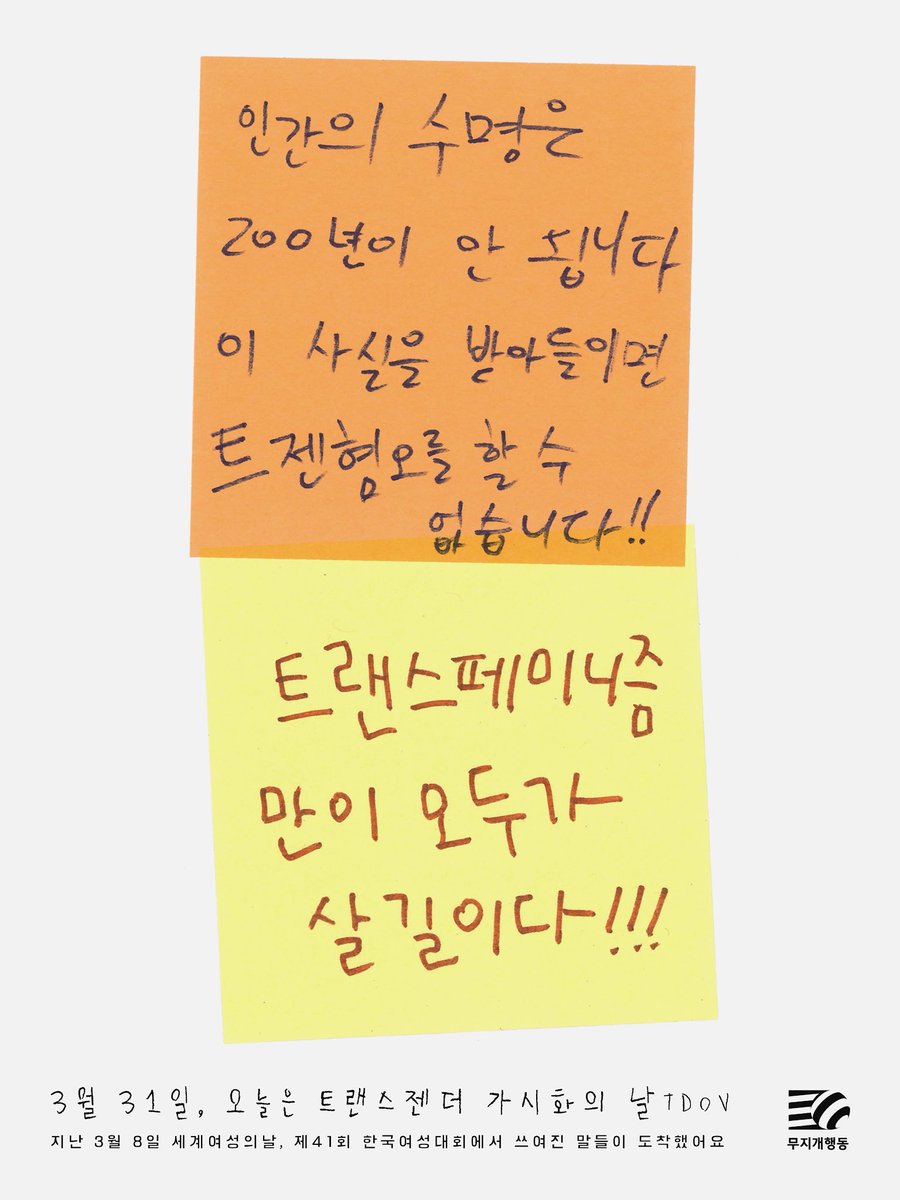 인간의 수명은
200년이 안 됩니다
이 사실을 받아들이면
트젠혐오를 할 수
없습니다!!
트랜스페미니즘
만이 모두가
살길이다!!!
3월 31일, 오늘은 트랜스젠더 가시화의 날 TDOV
지난 3월 8일 세계여성의날, 제41회 한국여성대회에서 쓰여진 말들이 도착했어요
무지개행동